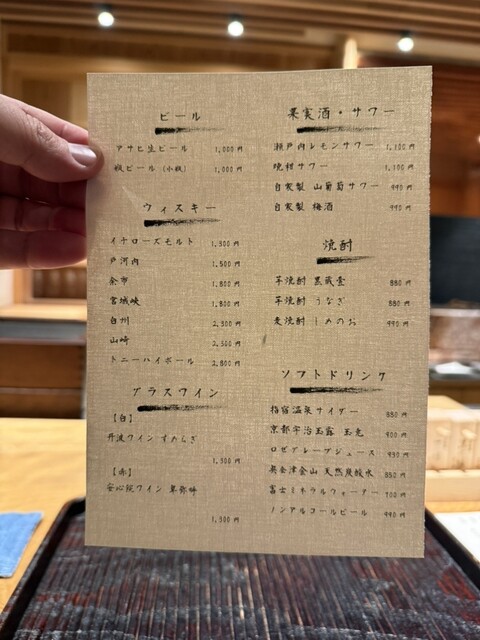 ビール
アサヒ生ビール 1,000円
瓶ビール (小瓶) 1,000円
ウィスキー
イチローズモルト 1,500円
戸河内 1,500円
余市 1,800円
宮城峡 1,800円
白州 2,500円
山崎 2,500円
トニーハイボール 2,800円
グラスワイン
【白】
丹波ワイン すめらぎ
1,300円
【赤】
安心院ワイン 卑弥呼
1,300円
果実酒・サワー
瀬戸内レモンサワー 1,100円
晩柑サワー 1,100円
自家製 山葡萄サワー 990円
自家製 梅酒 990円
焼酎
芋焼酎 黒蔵壹 880円
芋焼酎 うなぎ 880円
麦焼酎 990円
ソフトドリンク
指宿温泉サイダー 880円
京都宇治玉露 玉兎 900円
ロゼグレープジュース 990円
奥会津金山 天然炭酸水 880円
富士ミネラルウォーター 700円
ノンアルコールビール 990円